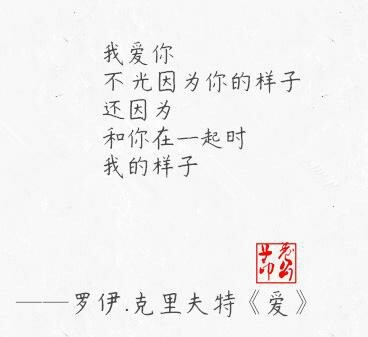 我爱你
不光因为你的样子
还因为
和你在一起时
我的样子
——罗伊.克里夫特《爱》